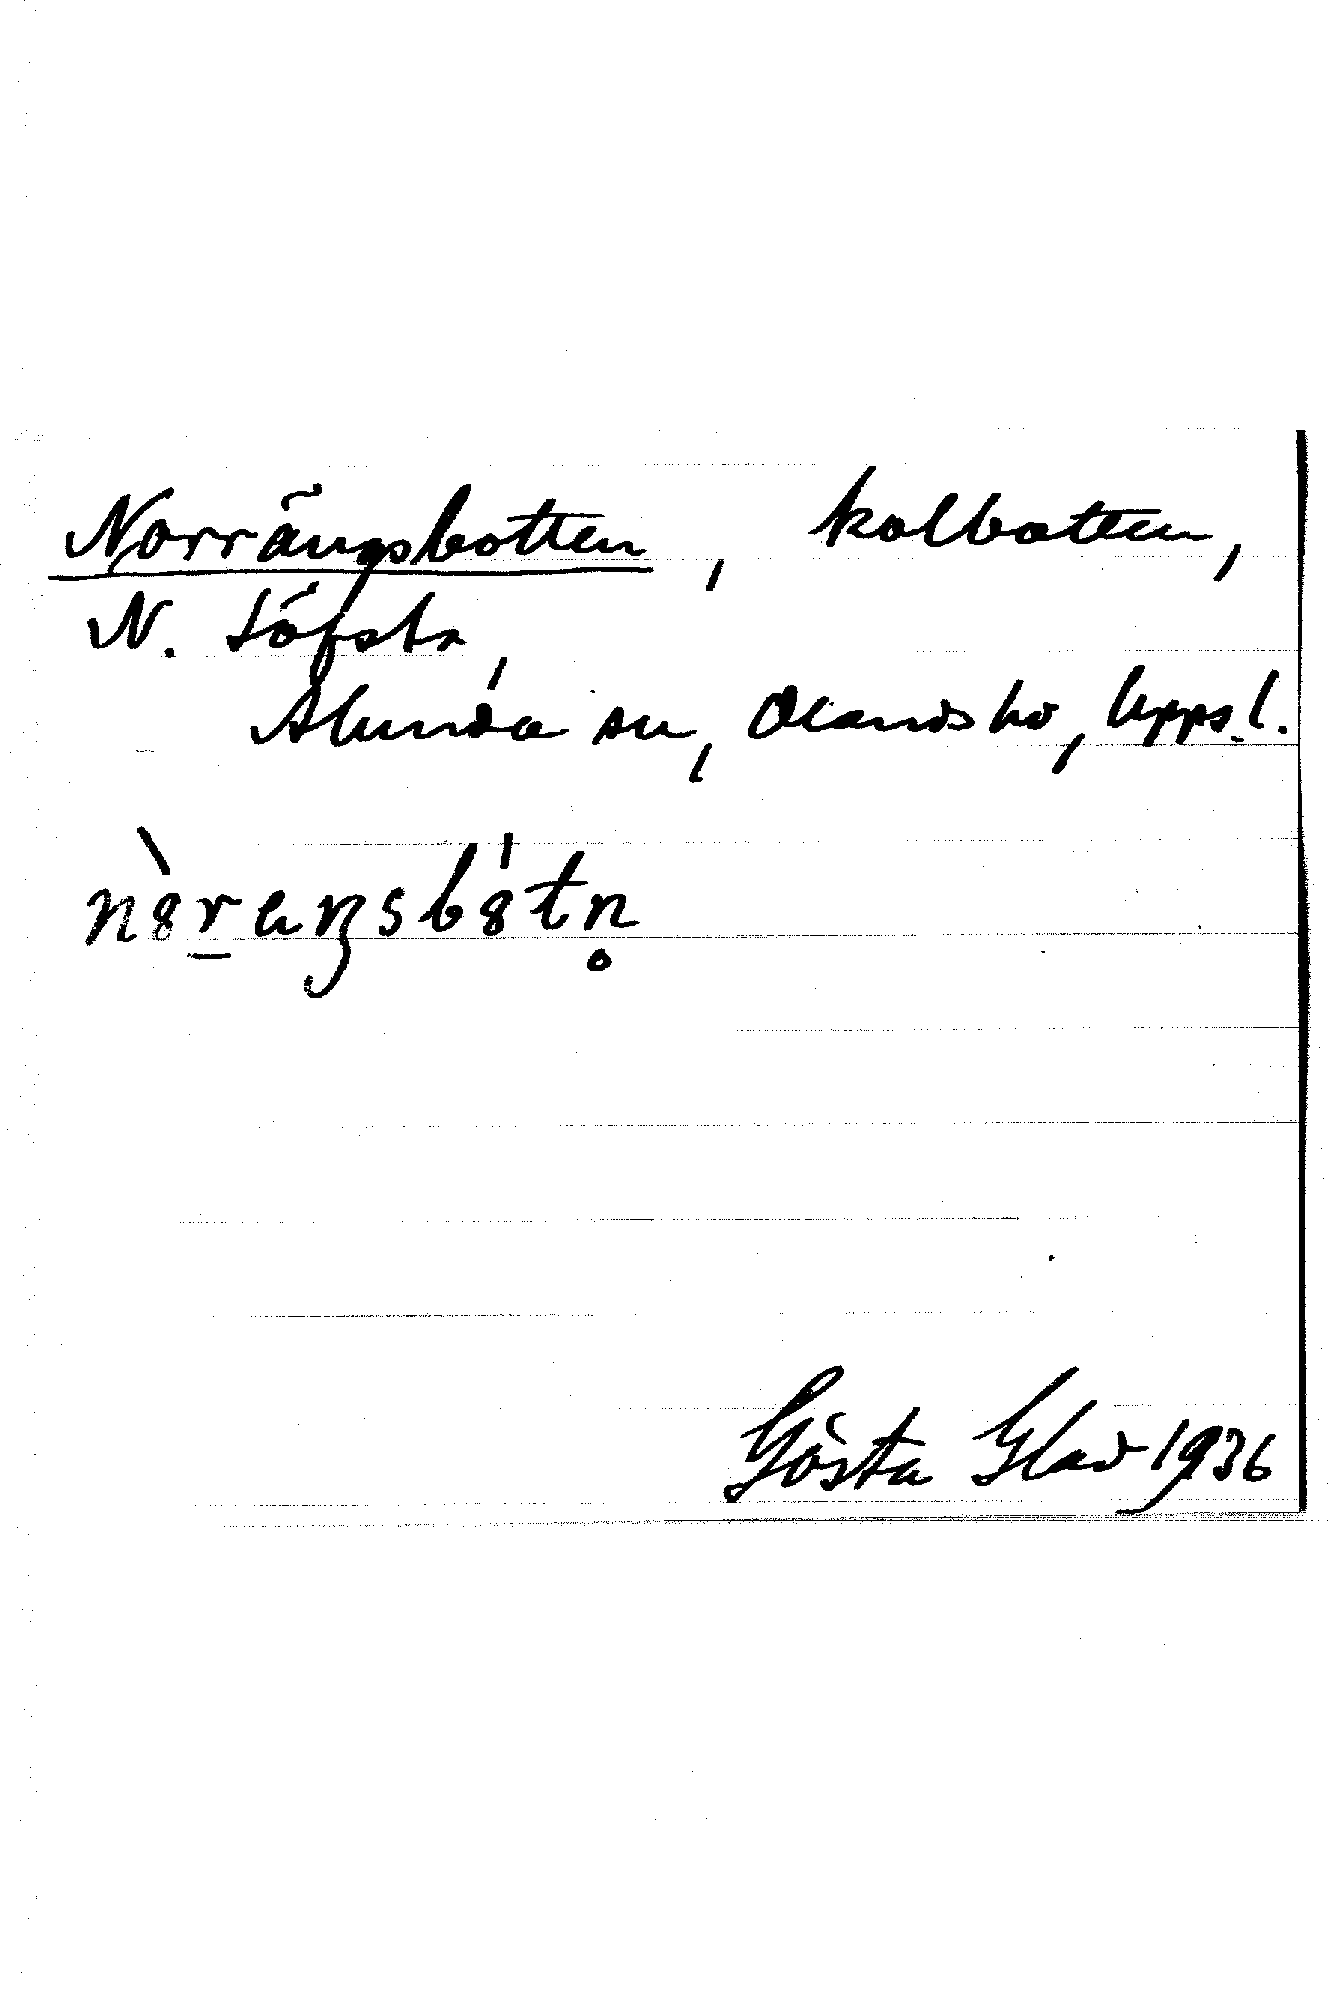 Norrängsbotten, kolbotten,
N. Löfsta,
Alunda sn, Olands hd, Upps. l.
Gösta Glad 1936